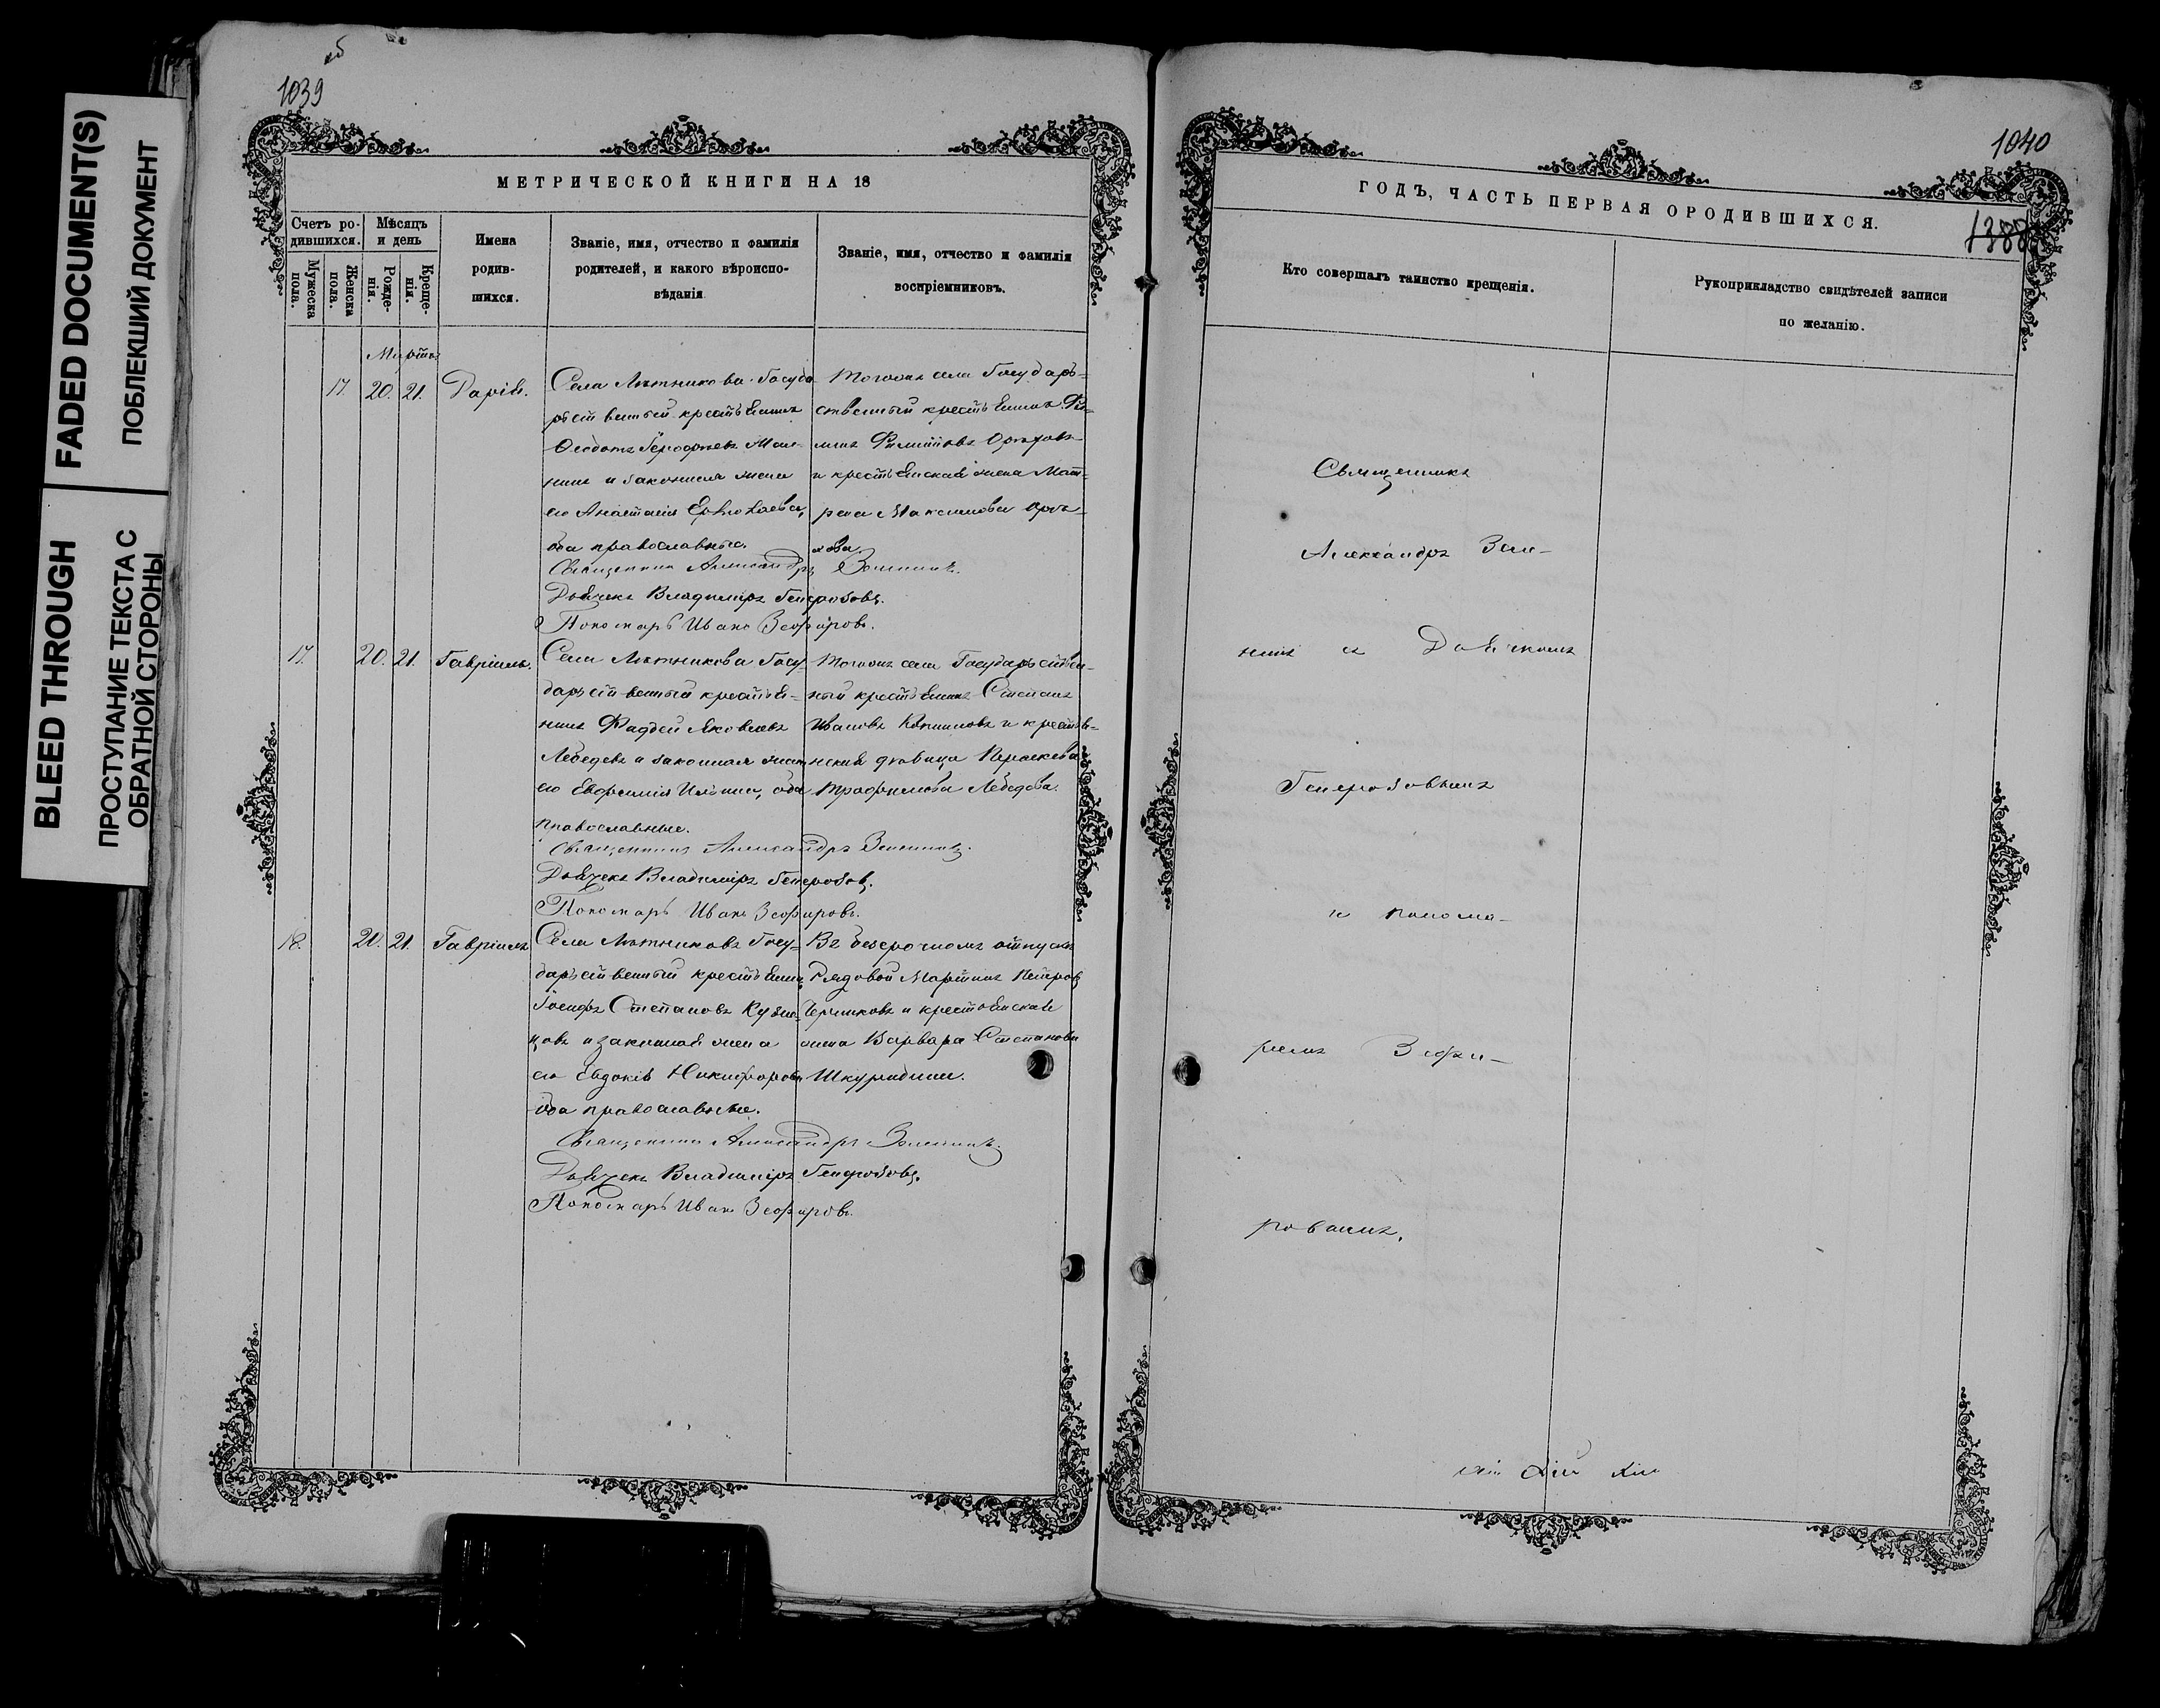 FADED DOCUMENT(S)
ПОБЛЕКШИЙ ДОКУМЕНТ
BLEED THROUGH
ПРОСТУПАНИЕ ТЕКСТА С
ОБРАТНОЙ СТОРОНЫ
1039
МЕТРИЧЕСКОЙ КНИГИ НА 18
Счетъ ро-
дившихся.
Мѣсяцъ
и день
Мужеска
пола.
Женска
пола.
Рожде-
нія.
Креще-
нія.
Имена
родив-
шихся.
Званіе, имя, отчество и фамилія
родителей, и какого вѣроиспо-
вѣданія
Званіе, имя, отчество и фамилія
воспріемниковъ.
Марта
17. 20. 21. Дарія.
Села Лѣтникова Госуда-
рственный крестьянинъ
Ѳеодотъ
нинъ и законная жена
его Анастасія Ермолаева,
оба православные.
Тогоже села Государ-
ственный крестьянинъ Фи-
липъ Филиповъ
и крестьянская жена Мат-
рена Максимова
Священникъ Александръ
Дьячекъ Владиміръ Генерозовъ.
Пономарь Иванъ Зефировъ.
17. 20. 21. Гавріилъ.
Села Лѣтникова Госу-
дарственный крестья-
нинъ Фаддей Яковлевъ
Лебедевъ и законная жена
его Евфимія Ильина, оба
православные.
Тогоже села Государствен-
ный крестьянинъ Степанъ
Ивановъ и крестья-
нская дѣвица Параскева
Трофимова Лебедева.
Священникъ Александръ
Дьячекъ Владиміръ Генерозовъ.
Пономарь Иванъ Зефировъ.
18. 20. 21. Гавріилъ
Села Лѣтникова Госу-
дарственный крестьянинъ
Іосифъ Степановъ Кузне-
цовъ и законная жена
его Евдокія Никифорова
оба православные.
Въ безсрочномъ отпуску
Рядовой Мартинъ Петровъ
и крестьянская
жена Варвара Степанова
Священникъ Александръ
Дьячекъ Владиміръ Генерозовъ.
Пономарь Иванъ Зефировъ.
1040
ГОДЪ, ЧАСТЬ ПЕРВАЯ ОРОДИВШИХСЯ.
Кто совершалъ таинство крещенія.
Рукоприкладство свидѣтелей записи
по желанію.
Священникъ
Александръ
съ Дьячкомъ
Генерозовымъ
и понома-
ремъ Зефи-
ровымъ.